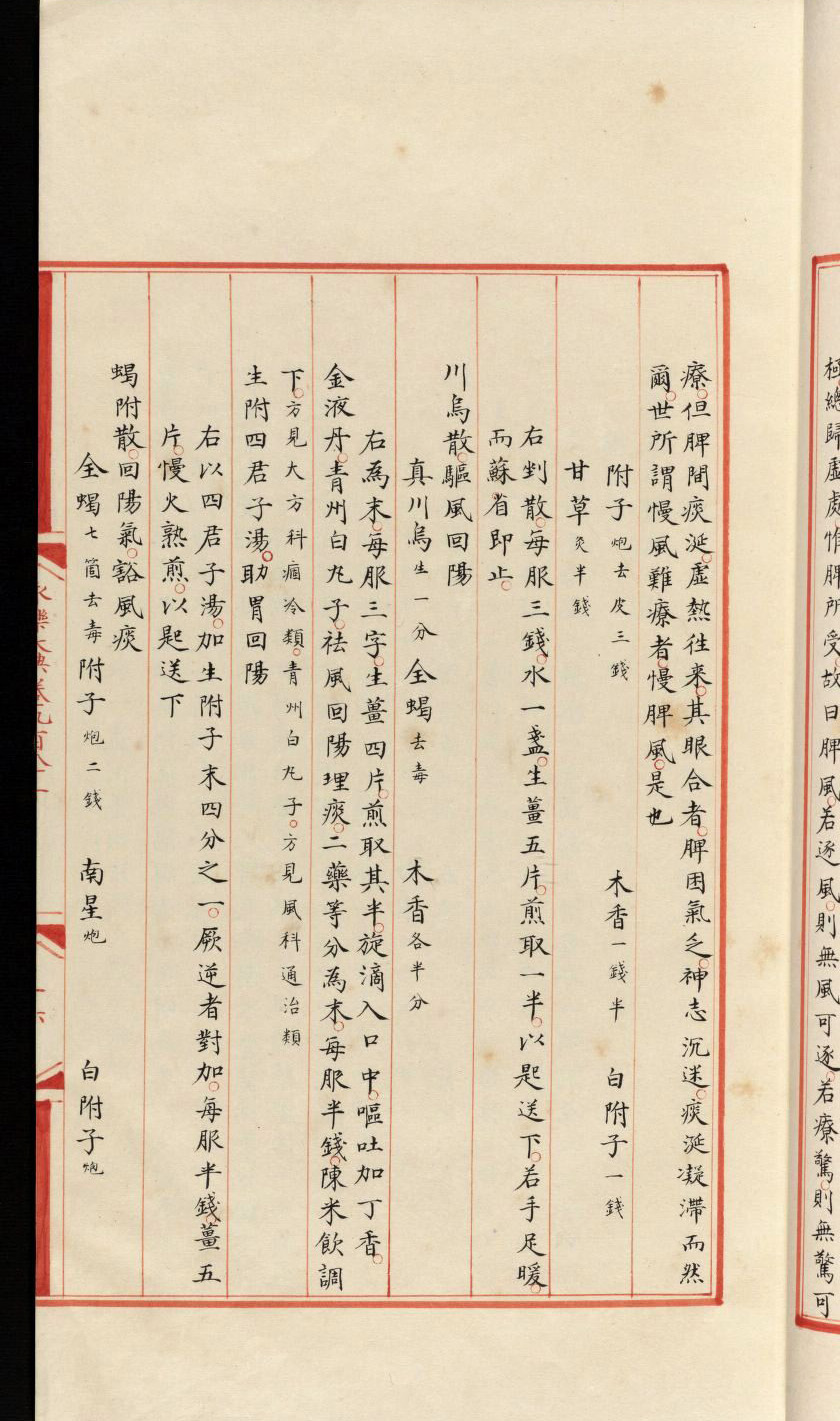 極總歸虛處惟脾所受故曰脾風若逐風則無風可逐若療驚則無驚可
療但脾間痰涎虛熱往来其眼合者脾困氣乏神志沉迷痰涎凝滯而然
爾世所謂慢風難療者慢脾風是也
附子炮去皮三錢 木香一錢半 白附子一錢
甘草炙半錢
右剉散每服三錢水一盞生薑五片煎取一半以匙送下若手足暖
而蘇省即止
川烏散驅風回陽
真川烏生一分全蝎去毒 木香各半分
右為末每服三字生薑四片煎取其半旋滴入口中嘔吐加丁香
金液丹青州白丸子祛風回陽理痰二藥等分為末每服半錢陳米飲調
下方見大方科痼冷類青州白丸子方見風科通治類
生附四君子湯助胃回陽
右以四君子湯加生附子末四分之一厥逆者對加每服半錢薑五
片慢火熟煎以匙送下
蝎附散回陽氣豁風痰
全蝎七箇去毒附子炮二錢 南星炮 白附子炮